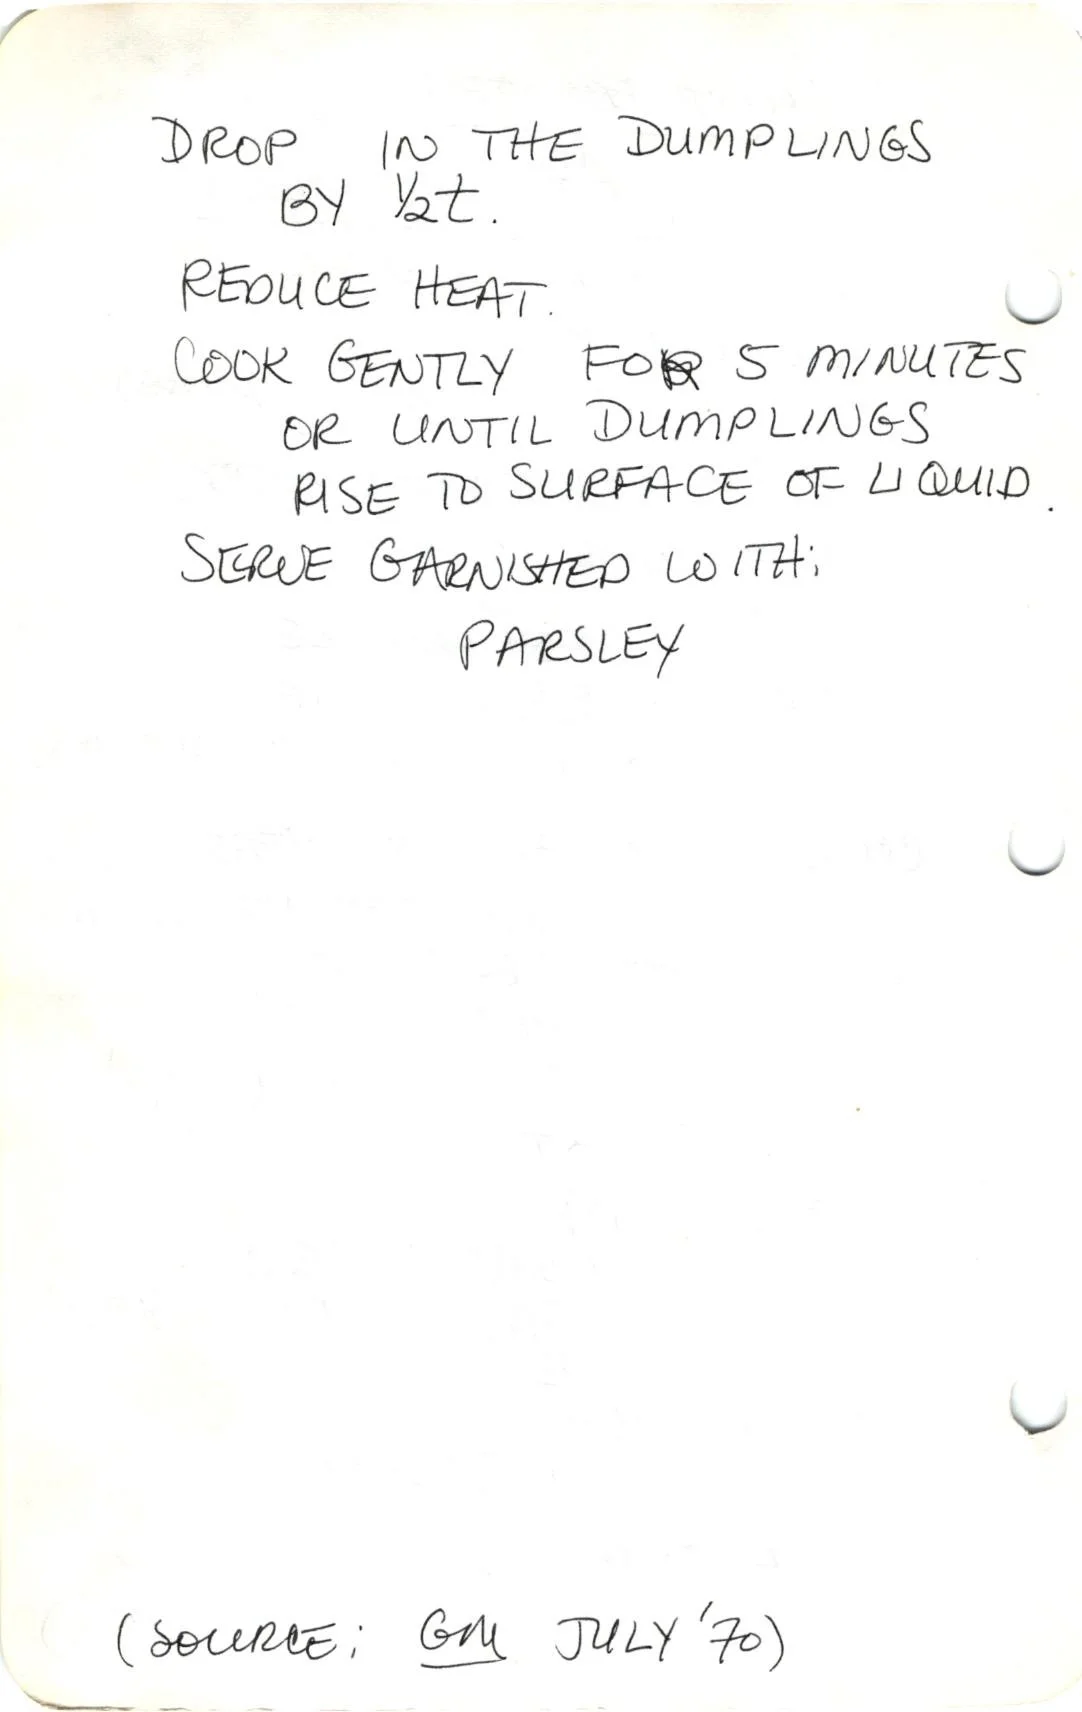 DROP IN THE DUMPLINGS
BY ½t.
REDUCE HEAT.
COOK GENTLY FOR 5 MINUTES
OR UNTIL DUMPLINGS
RISE TO SURFACE OF LIQUID.
SERVE GARNISHED WITH:
PARSLEY
(SOURCE: GM JULY '70)